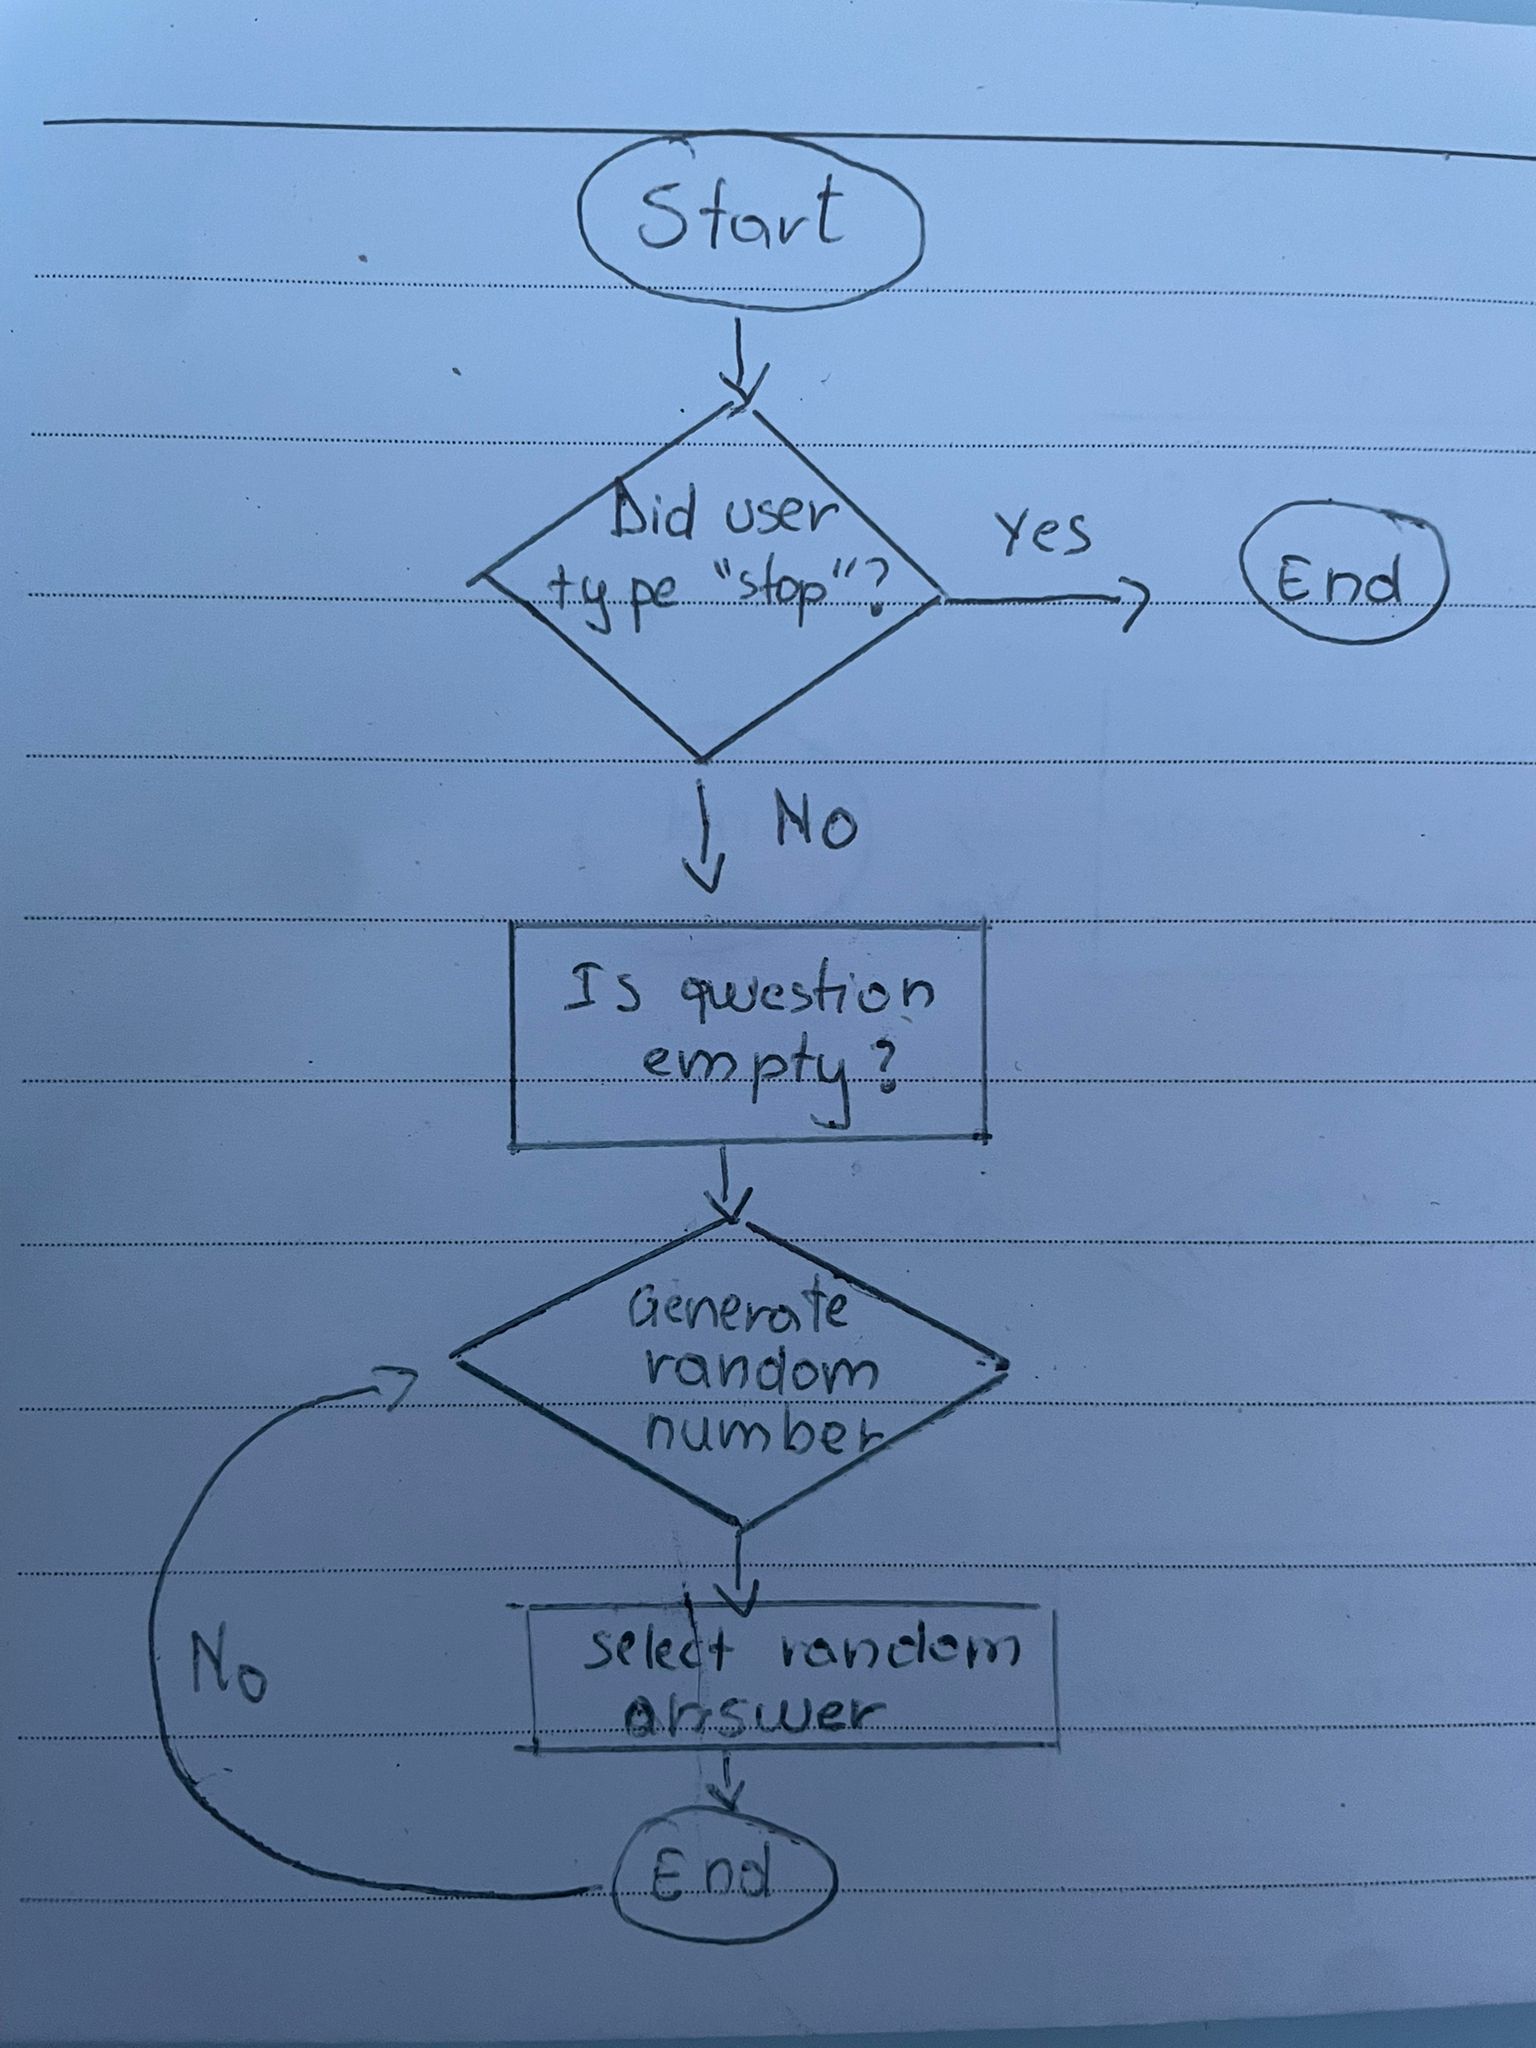 Start
Did user
type "stop"?
Yes
End
No
Is question
empty?
Generate
random
number
No
select random
answer
End